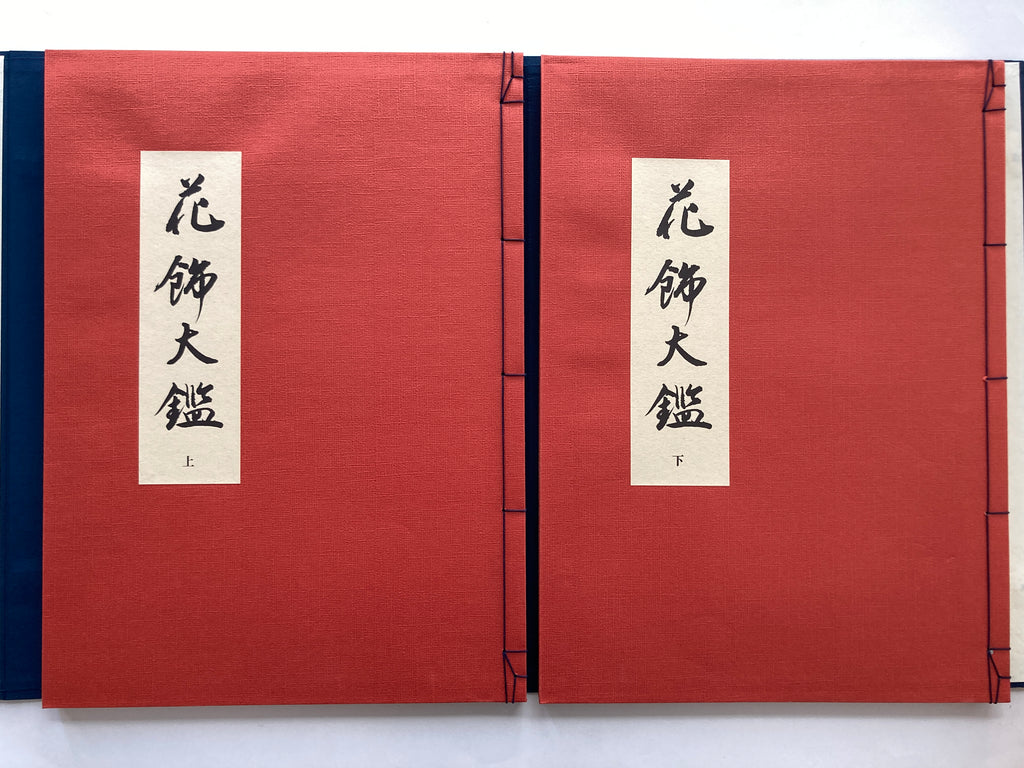 花飾大鑑
上
花飾大鑑
下